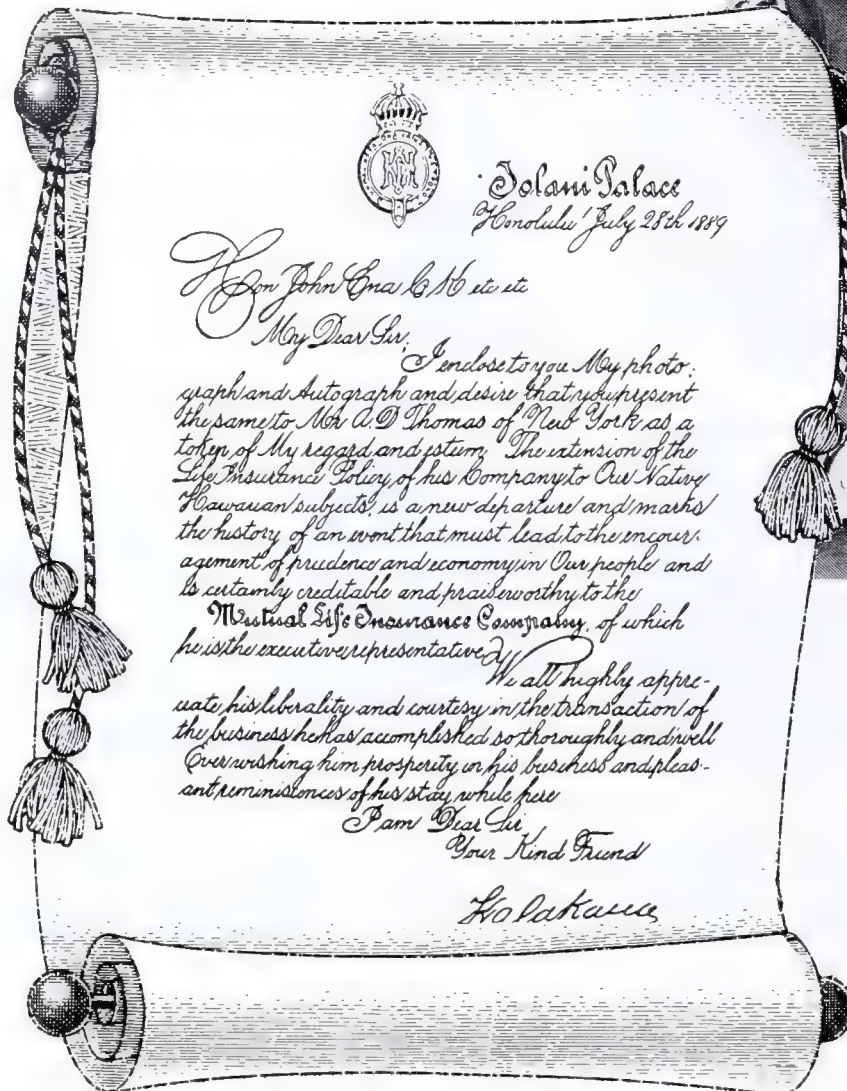 Iolani Palace
Honolulu July 28th 1889
Hon John Ena C H etc etc
My Dear Sir,
I enclose to you My photo-
graph and Autograph and desire that you present
the same to Mr A. D Thomas of New York as a
token of My regard and estum. The extension of the
Life Insurance Policy of his Company to Our Native
Hawaiian subjects, is a new departure and marks
the history of an event that must lead to the encour-
agement of prudence and economy in Our people and
is certainly creditable and praiseworthy to the
Mutual Life Insurance Company, of which
he is the executive representative
We all highly appre-
ciate his liberality and courtesy in the transaction of
the business he has accomplished so thoroughly and well
Ever wishing him prosperity in his business and pleas-
ant reminiscences of his stay while here
I am Dear Sir
Your Kind Friend
Kalakaua